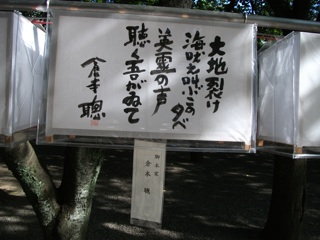 大地裂け
海吠え叫ぶこの夕べ
英霊の声
聴く吾がゐて
倉本聰
脚本家
倉本 聰